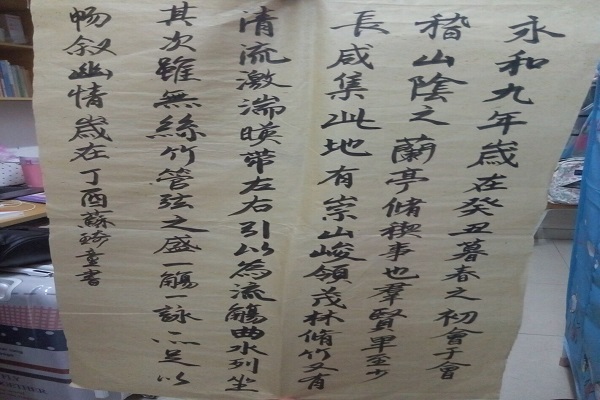 永和九年歲在癸丑暮春之初會于會
稽山陰之蘭亭脩稧事也羣賢畢至少
長咸集此地有崇山峻領茂林脩竹又有
清流激湍暎帶左右引以為流觴曲水列坐
其次雖無絲竹管弦之盛一觴一詠亦足以
暢叙幽情歲在丁酉蘇珍童書